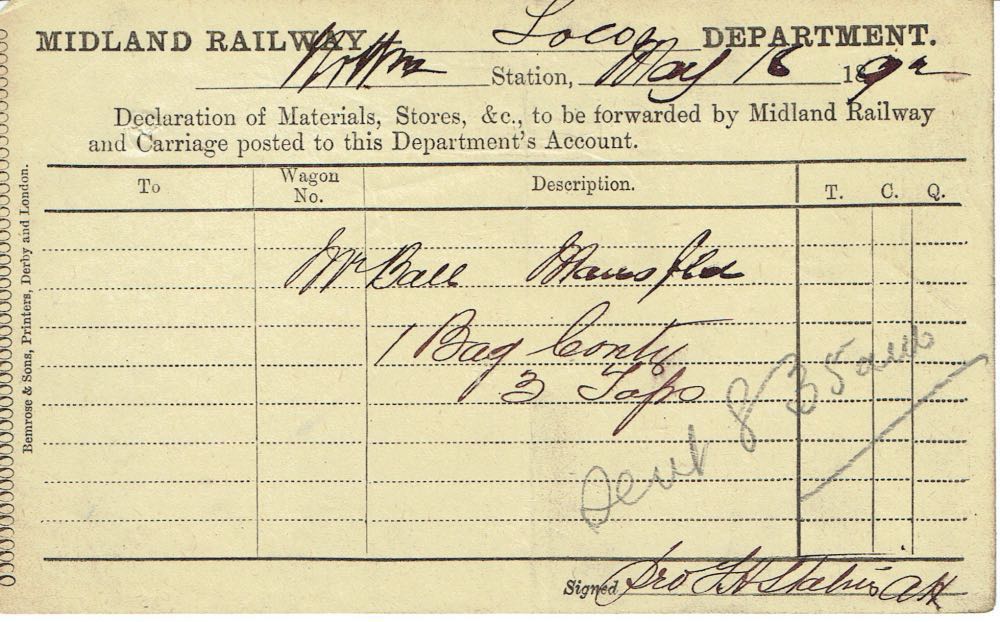 MIDLAND RAILWAY Loco DEPARTMENT.
Station, May 18 1892
Declaration of Materials, Stores, &c., to be forwarded by Midland Railway
and Carriage posted to this Department's Account.
To Wagon No. Description. T. C. Q.
Mr Ball Mansfield
1 Bag Contg
3 Taps
Sent 8 35 am
Signed pro
Bemrose & Sons, Printers, Derby and London.